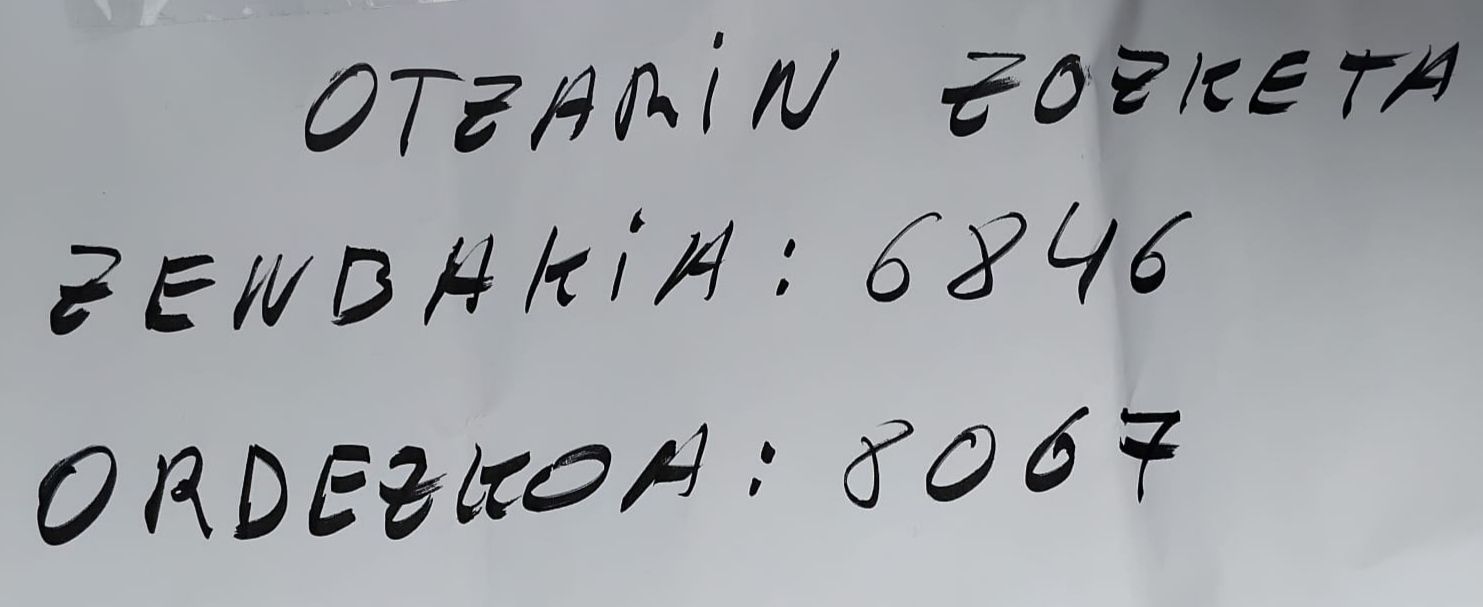 OTZARIN ZOZKETA
ZENBAKIA: 6846
ORDEZKOA: 8067